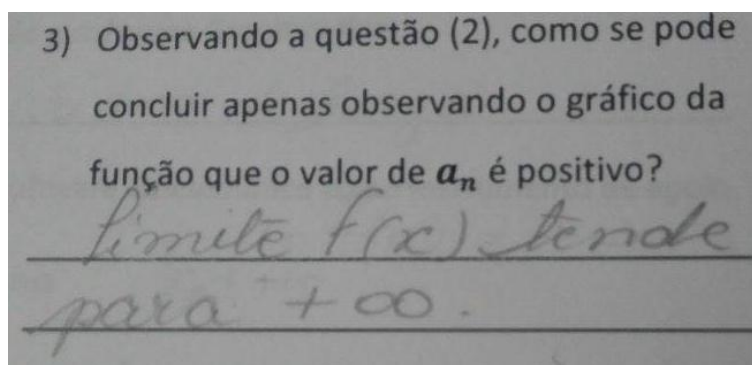 3) Observando a questão (2), como se pode
concluir apenas observando o gráfico da
função que o valor de aₙ é positivo?
Limite f(x) tende
para +∞.